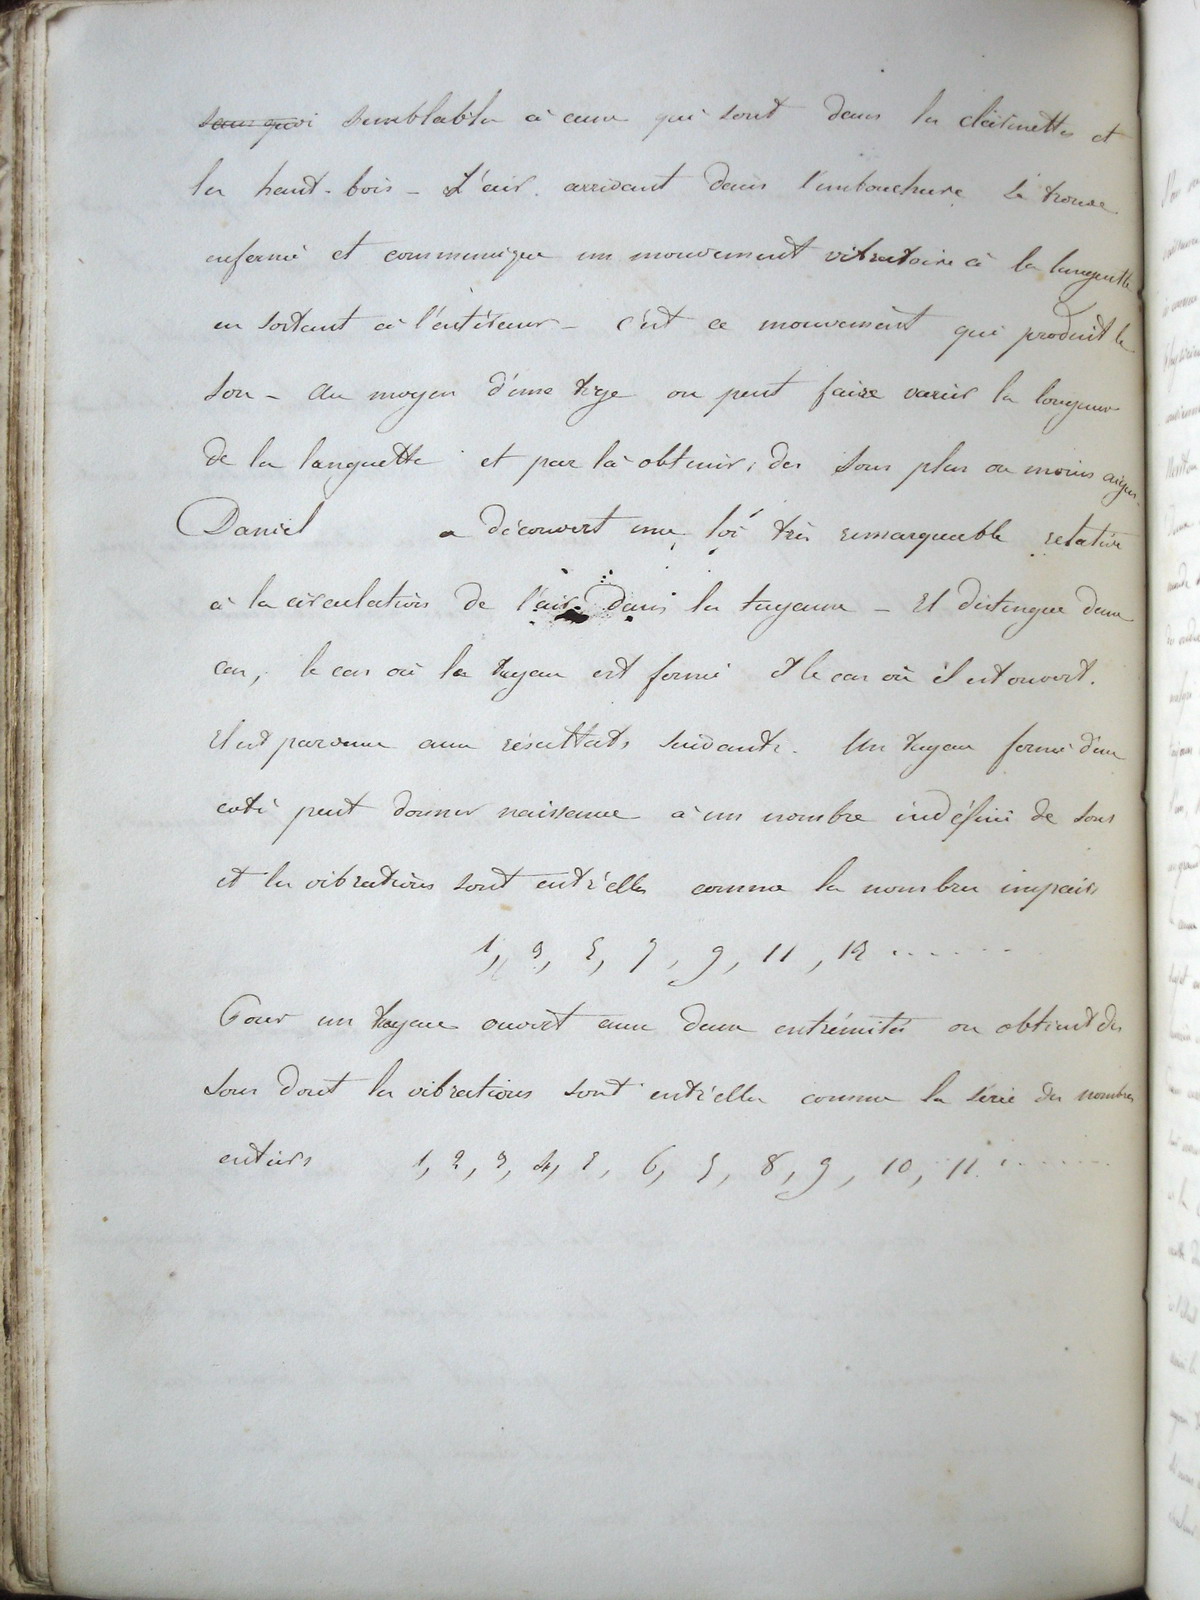 sans quoi semblables à ceux qui sont dans les clarinettes et
les haut-bois - L'air arrivant dans l'embouchure se trouve
enfermé et communique un mouvement vibratoire à la languette
en sortant à l'extérieur - c'est ce mouvement qui produit le
son - Au moyen d'une tige on peut faire varier la longueur
de la languette et par là obtenir, des sons plus ou moins aigus
Daniel a découvert une loi très remarquable relative
à la circulation de l'air dans les tuyaux - Il distingue deux
cas, le cas où le tuyau est fermé et le cas où il est ouvert.
Il est parvenu aux résultats suivants. Un tuyau fermé d'un
coté peut donner naissance à un nombre indéfini de sons
et les vibrations sont entr'elles comme les nombres impairs
1, 3, 5, 7, 9, 11, 13 . . . . . .
Pour un tuyau ouvert aux deux extrémités on obtient des
sons dont les vibrations sont entr'elles comme la série des nombres
entiers 1, 2, 3, 4, 5, 6, 7, 8, 9, 10, 11 . . . . . .